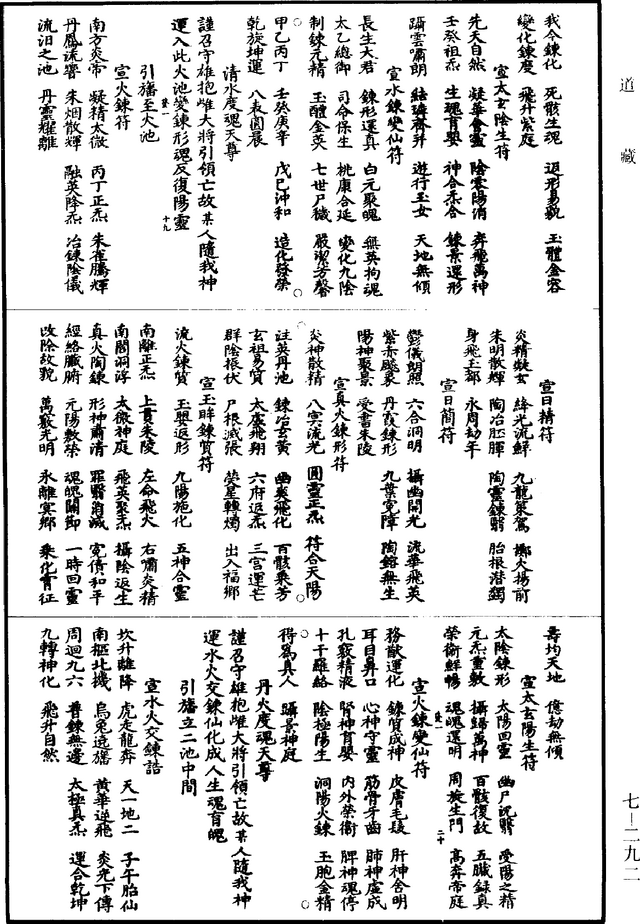 道藏
我今鍊化　死骸生魂　返形易貌　玉體金容
變化鍊度　飛升紫庭
宣太玄陰生符
先天自然　凝華會靈　陰雲陽消　奔飛萬神
壬癸祖炁　生魂育嬰　神合炁合　鍊景還形
躡雲嘯朗　遊行玉女　天地無傾
宣水鍊變仙符
長生大君　鍊形還真　白元聚魄　無英拘魂
太乙總御　司命保生　桃康合延　變化九陰
制鍊元精　玉醴金英　七世尸穢　嚴潔芳馨
甲乙丙丁　壬癸庚辛　戊巳沖和　造化發榮
乾旋坤運　八表圓晨
清水度魂天尊
謹召守雄抱雌大將引領亡故某人隨我神
運入此火池變鍊形魂反復陽靈
十九
引旛至火池
宣火鍊符
南方炎帝　凝精太微　丙丁正炁　朱雀騰輝
丹鳳流響　朱烟散輝　融英降炁　冶鍊陰儀
流汨之池　丹靈耀離
宣日精符
炎精凝玄　絳光流鮮　九龍策駕　擲火揚前
朱明散輝　陶冶胚腪　陶靈鍊翳　胎根潛蠲
身飛玉都　永周劫年
宣日籣符
鬱儀朗照　六合洞明　攝幽開光　流華飛英
紫赤飈裘　丹霞鍊形　九葉冤障　陶鎔無生
陽神聚景　受書朱陵
宣真火鍊形符
炎神散精　八寞流光　圓靈正炁　符合天陽
注英丹池　鍊冶玄黃　幽爽飛化　百骸乘芳
玄祖易質　太虛飛翔　六府返炁　三宮運亡
群陰振伏　尸根滅張　熒星轉燭　出入福鄉
宣玉眸鍊質符
流火鍊質　玉嬰返形　九陽施化　五神合靈
南離正炁　上貫朱陵　左命飛火　右嘯炎精
南閣洞浮　太微神庭　飛英聚炁　攝陰返生
真火陶鍊　形神肅清　罪翳消滅　冤債和平
經絡臟腑　元陽敷榮　魂魄關節　一時回靈
改除故貌　萬竅光明　永離冥鄉　乘化霄征
壽均天地　億劫無傾
宣太玄陽生符
太陰鍊形　太陽回靈　幽尸沉翳　受陽之精
元炁重敷　攝歸萬神　百骸復故　五臟錄真
榮衛鮮暢　魂魄還明　周旋生門　高奔帝庭
二十
宣火鍊變仙符
務猷運化　鍊質成神　皮膚毛髮　肝神含明
耳目鼻口　心神守靈　筋骨牙齒　肺神虛成
孔竅精液　腎神育嬰　內外榮衛　脾神魂停
十干羅絡　陰極陽生　洞陽火鍊　玉胞金精
得為真人　躡景神庭
丹火度魂天尊
謹召守雄抱雌大將引領亡故某人隨我神
運水火交鍊仙化成人生魂育魄
引旛立二池中間
宣水火交鍊誥
坎升離降　虎走龍奔　天一地二　子午胎仙
南樞北機　烏兔遶旛　黃華逆飛　炎光下傳
周迴九六　普鍊無邊　太極真炁　運合乾坤
九轉神化　飛升自然
七—二九二